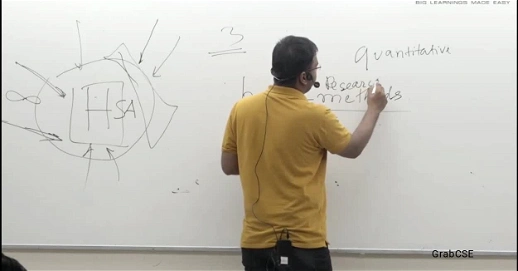 BIG LEARNINGS MADE EASY
3
quantitative
Research
methods
∞
HSA
GrabCSE